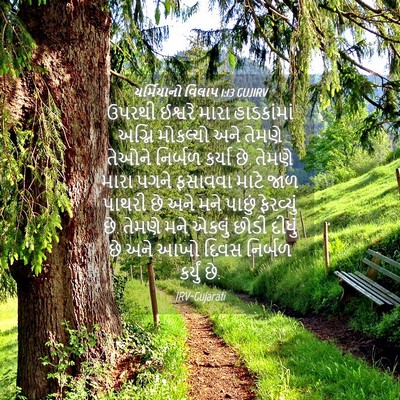 યર્મિયાનો વિલાપ 1:13 GUJIRV
ઉપરથી ઈશ્વરે મારા હાડકાંમાં
અગ્નિ મોકલ્યો અને તેમણે
તેઓને નિર્બળ કર્યા છે. તેમણે
મારા પગને ફસાવવા માટે જાળ
પાથરી છે અને મને પાછું ફેરવ્યું
છે. તેમણે મને એકલું છોડી દીધું
છે અને આખો દિવસ નિર્બળ
કર્યું છે.
IRV-Gujarati